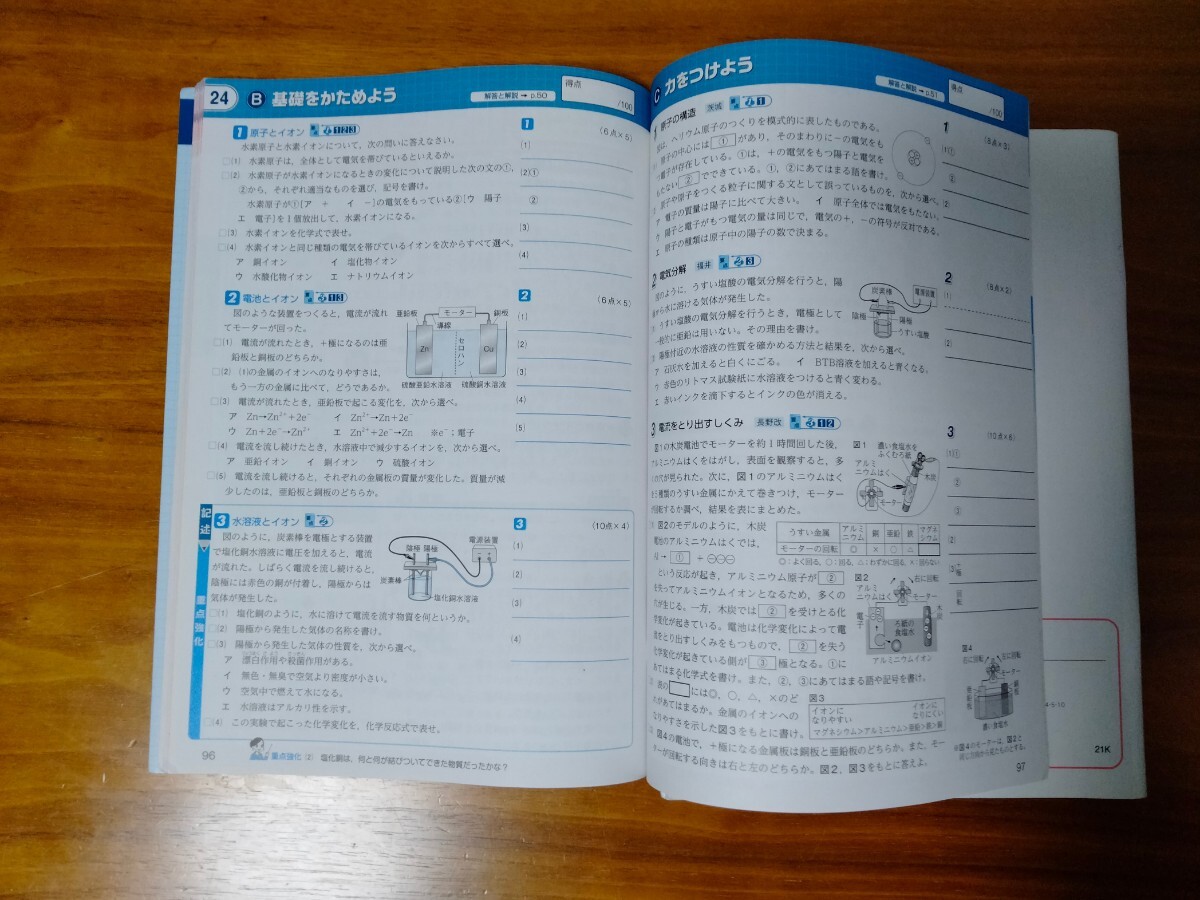 24 B 基礎をかためよう
解答と解説→p.50
得点
/100
1 原子とイオン 123
水素原子と水素イオンについて，次の問いに答えなさい。
□(1) 水素原子は，全体として電気を帯びているといえるか。
□(2) 水素原子が水素イオンになるときの変化について説明した次の文の①，
②から，それぞれ適当なものを選び，記号を書け。
水素原子が①[ア ＋ イ －]の電気をもっている②[ウ 陽子
エ 電子]を1個放出して，水素イオンになる。
□(3) 水素イオンを化学式で表せ。
□(4) 水素イオンと同じ種類の電気を帯びているイオンを次からすべて選べ。
ア 銅イオン イ 塩化物イオン
ウ 水酸化物イオン エ ナトリウムイオン
1 (6点×5)
(1)
(2)①
②
(3)
(4)
2 電池とイオン 13
図のような装置をつくると，電流が流れ
てモーターが回った。
□(1) 電流が流れたとき，＋極になるのは亜
鉛板と銅板のどちらか。
□(2) (1)の金属のイオンへのなりやすさは，
もう一方の金属に比べて，どうであるか。
□(3) 電流が流れたとき，亜鉛板で起こる変化を，次から選べ。
ア Zn→Zn²⁺+2e⁻ イ Zn²⁺→Zn+2e⁻
ウ Zn+2e⁻→Zn²⁺ エ Zn²⁺+2e⁻→Zn ※e⁻；電子
□(4) 電流を流し続けたとき，水溶液中で減少するイオンを，次から選べ。
ア 亜鉛イオン イ 銅イオン ウ 硫酸イオン
□(5) 電流を流し続けると，それぞれの金属板の質量が変化した。質量が減
少したのは，亜鉛板と銅板のどちらか。
亜鉛板 モーター 銅板
導線
Zn
セロハン
Cu
硫酸亜鉛水溶液 硫酸銅水溶液
2 (6点×5)
(1)
(2)
(3)
(4)
(5)
記述
重点強化
3 水溶液とイオン
図のように，炭素棒を電極とする装置
で塩化銅水溶液に電圧を加えると，電流
が流れた。しばらく電流を流し続けると，
陰極には赤色の銅が付着し，陽極からは
気体が発生した。
□(1) 塩化銅のように，水に溶けて電流を流す物質を何というか。
□(2) 陽極から発生した気体の名称を書け。
□(3) 陽極から発生した気体の性質を，次から選べ。
ア 漂白作用や殺菌作用がある。
イ 無色・無臭で空気より密度が小さい。
ウ 空気中で燃えて水になる。
エ 水溶液はアルカリ性を示す。
□(4) この実験で起こった化学変化を，化学反応式で表せ。
陰極 陽極
電源装置
炭素棒
塩化銅水溶液
3 (10点×4)
(1)
(2)
(3)
(4)
96
重点強化 (2) 塩化銅は，何と何が結びついてできた物質だったかな？
C 力をつけよう
解答と解説→p.51
得点
/100
1 原子の構造 茨城 1
は，ヘリウム原子のつくりを模式的に表したものである。
原子の中心には①があり，そのまわりに－の電気をも
電子が存在している。①は，＋の電気をもつ陽子と電気を
もたない②でできている。①，②にあてはまる語を書け。
原子や原子をつくる粒子に関する文として誤っているものを，次から選べ。
ア 電子の質量は陽子に比べて大きい。 イ 原子全体では電気をもたない。
ウ 陽子と電子がもつ電気の量は同じで，電気の＋，－の符号が反対である。
エ 原子の種類は原子中の陽子の数で決まる。
1 (8点×3)
(1)①
②
(2)
2 電気分解 福井 3
図のように，うすい塩酸の電気分解を行うと，陽
極から水に溶ける気体が発生した。
うすい塩酸の電気分解を行うとき，電極として
亜鉛は用いない。その理由を書け。
陽極付近の水溶液の性質を確かめる方法と結果を，次から選べ。
ア 石灰水を加えると白くにごる。 イ BTB溶液を加えると青くなる。
ウ 赤色のリトマス試験紙に水溶液をつけると青く変わる。
エ 赤いインクを滴下するとインクの色が消える。
炭素棒 電源装置
陰極 陽極
うすい塩酸
2 (8点×2)
(1)
(2)
3 電流をとり出すしくみ 長野改 12
図1の木炭電池でモーターを約1時間回した後，
アルミニウムはくをはがし，表面を観察すると，多
の穴が見られた。次に，図1のアルミニウムはく
種類のうすい金属にかえて巻きつけ，モーター
回転するか調べ，結果を表にまとめた。
図2のモデルのように，木炭
電池のアルミニウムはくでは，
Al→①＋⊖⊖⊖
という反応が起き，アルミニウム原子が②
を失ってアルミニウムイオンとなるため，多くの
穴が生じる。一方，木炭では②を受けとる化
学変化が起きている。電池は化学変化によって電
流をとり出すしくみをもつもので，②を失う
化学変化が起きている側が③極となる。①に
あてはまる化学式を書け。また，②，③にあてはまる語や記号を書け。
表の□には◎，○，△，×のど
れがあてはまるか。金属のイオンへの
なりやすさを示した図3をもとに書け。
図4の電池で，＋極になる金属板は銅板と亜鉛板のどちらか。また，モー
ターが回転する向きは右と左のどちらか。図2，図3をもとに答えよ。
図1 濃い食塩水を
ふくむろ紙
アルミ
ニウムはく
木炭
モーター
うすい金属 アルミニウム 銅 亜鉛 鉄 マグネシウム
モーターの回転 ◎ × ○ △
◎：よく回る，○：回る，△：わずかに回る，×：回らない
図2
右に回転
アルミ
ニウムはく
モーター
木炭
電子
ろ紙の
食塩水
アルミニウムイオン
図3
イオンに
なりやすい
イオンに
なりにくい
マグネシウム＞アルミニウム＞亜鉛＞鉄＞銅
図4
右に回転 左に回転
モーター
亜鉛板
銅板
濃い食塩水
※図4のモーターは，図2と
同じ方向から見たものとする。
3 (10点×6)
(1)①
②
③
(2)
(3)極
回転
97
21K